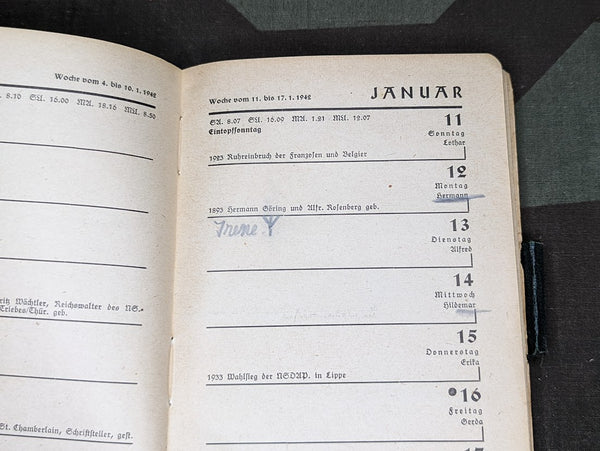 Woche vom 4. bis 10. 1. 1942
A. 8.10 SU. 16.00 MA. 18.16 MU. 8.50
ritz Wächtler, Reichswalter des NS.-
Triebes/Thür. geb.
St. Chamberlain, Schriftsteller, gest.
Woche vom 11. bis 17. 1. 1942 JANUAR
SA. 8.07 SU. 16.09 MA. 1.21 MU. 12.07 11
Eintopfsonntag Sonntag
Lothar
1923 Ruhreinbruch der Franzosen und Belgier
12
Montag
Hermann
1893 Hermann Göring und Alfr. Rosenberg geb.
Irene 13
Dienstag
Alfred
14
Mittwoch
Hildemar
15
Donnerstag
Erika
1933 Wahlsieg der NSDAP. in Lippe
16
Freitag
Gerda
17